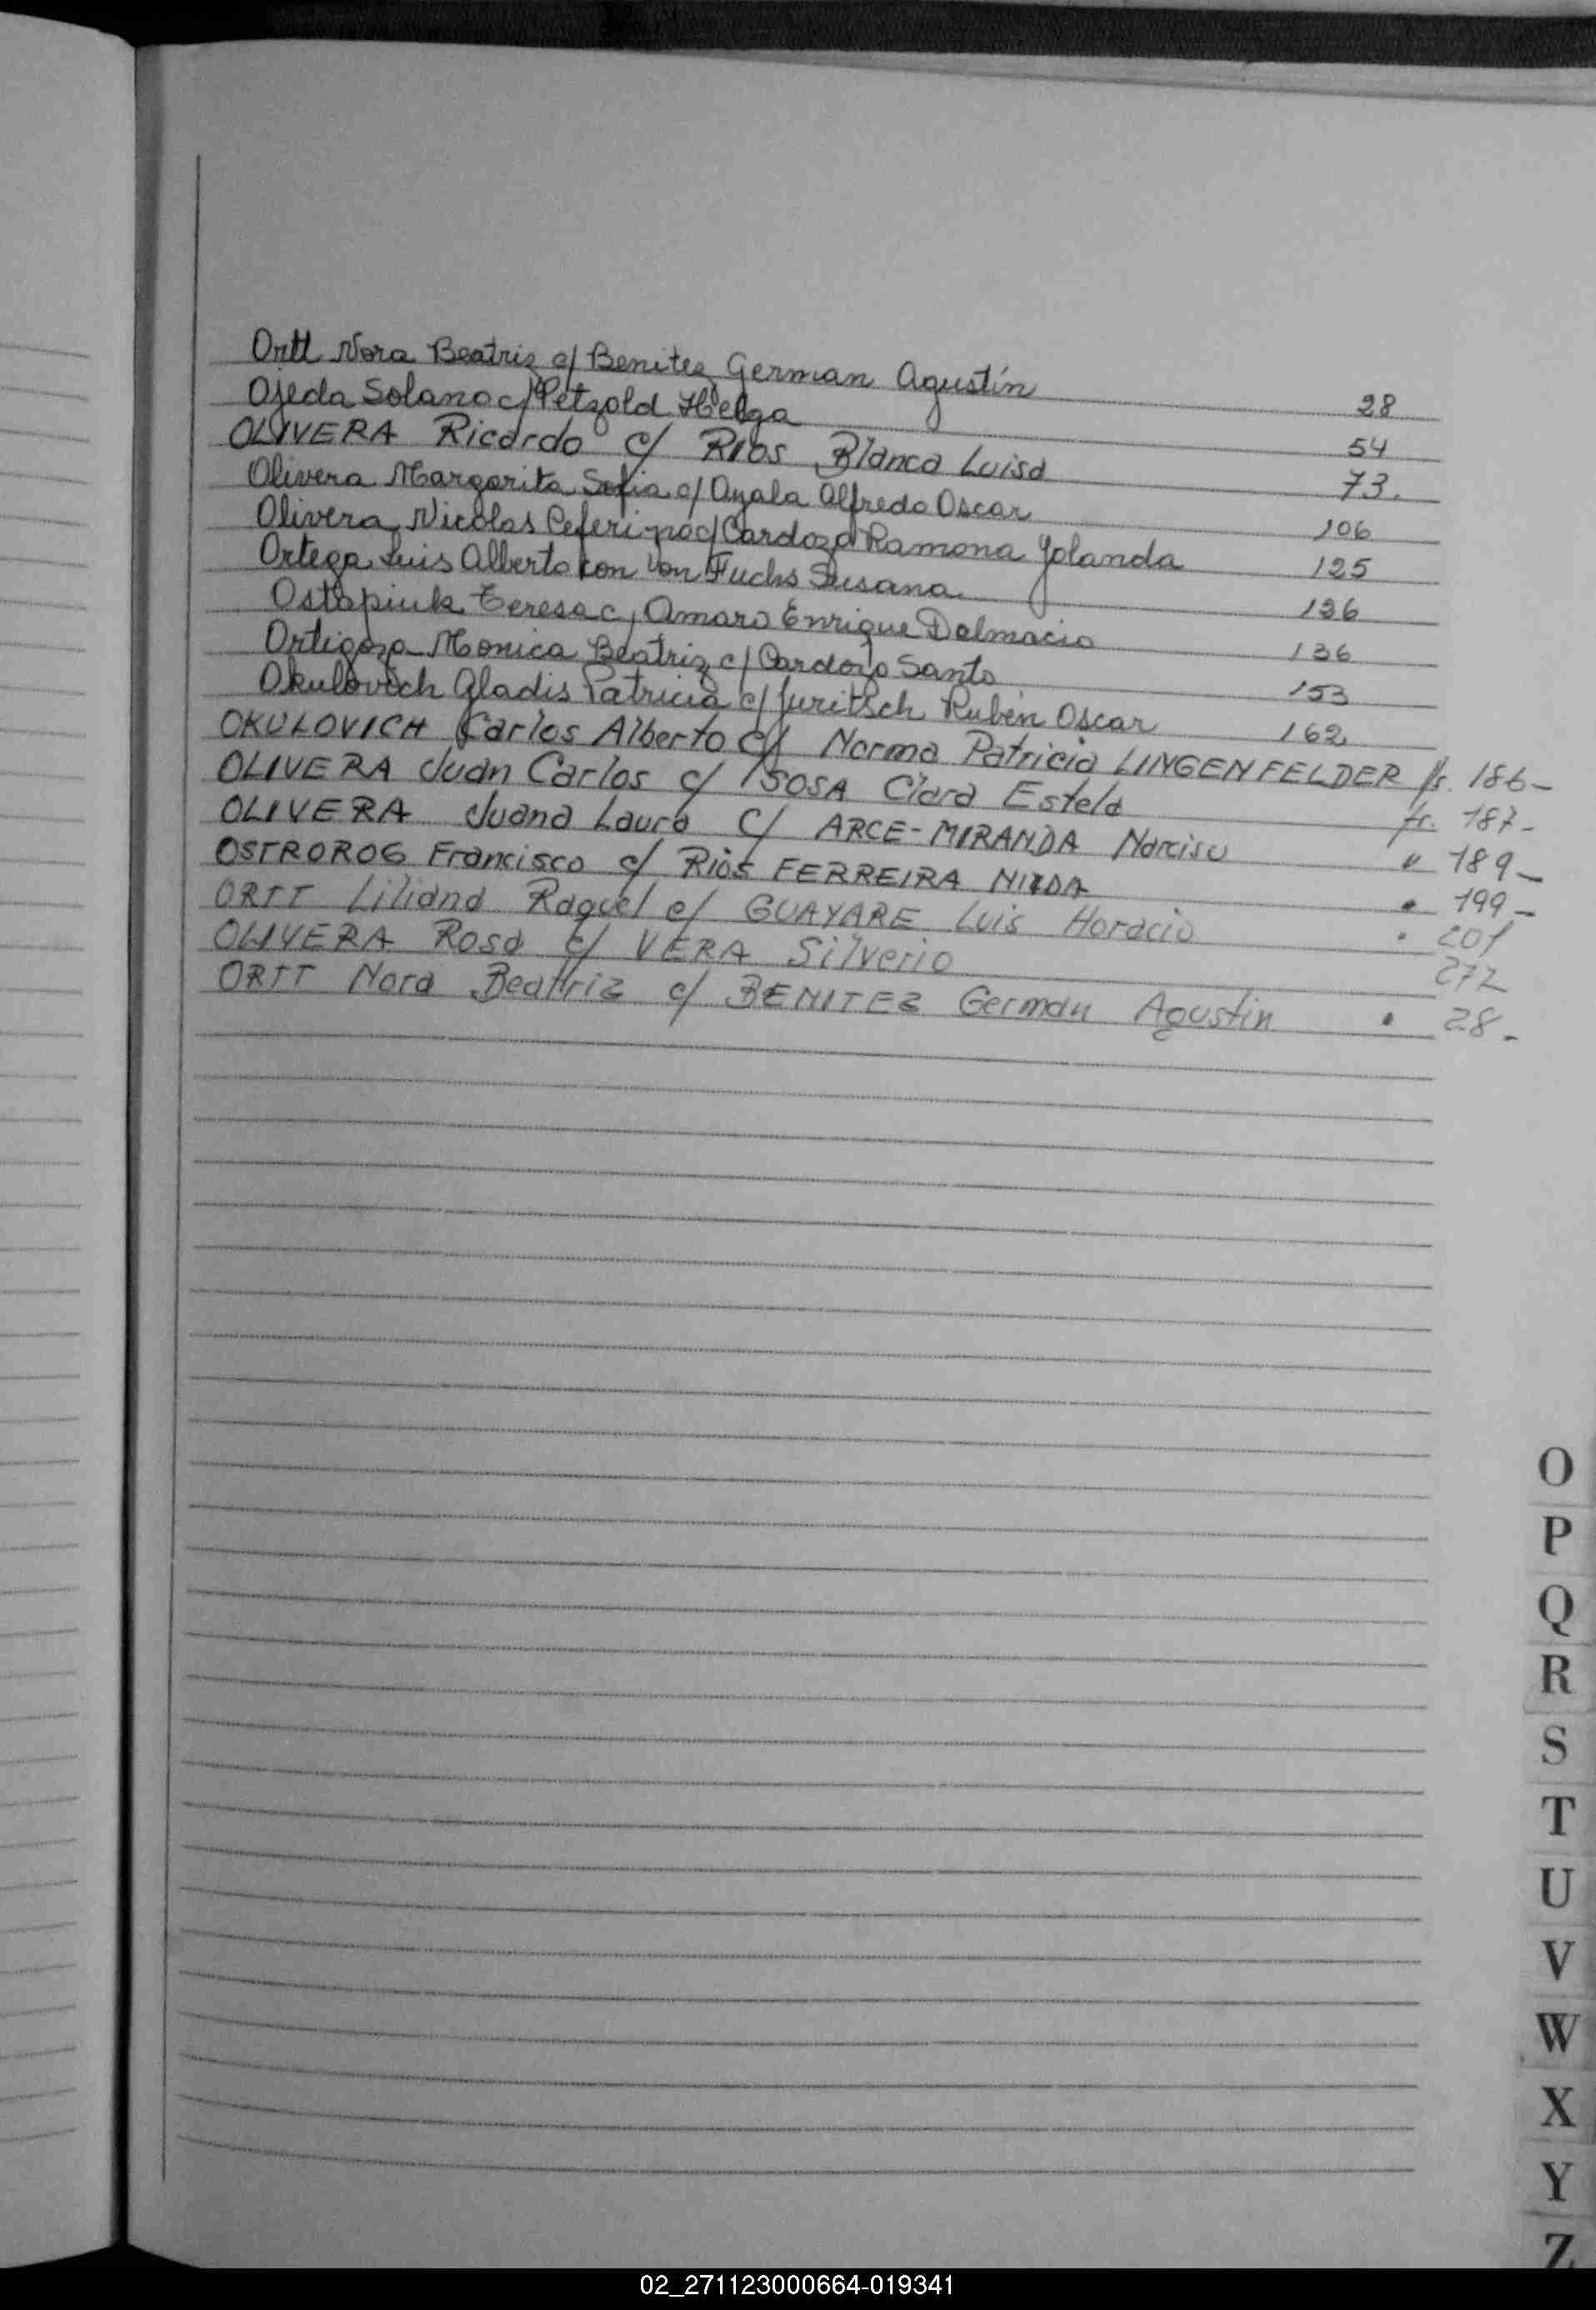 Ortt Nora Beatriz c/ Benitez German Agustín 28
Ojeda Solano c/ Petzold Helga 54
OLIVERA Ricardo c/ RIOS Blanca Luisa 73.
Olivera Margarita Sofia c/ Ayala Alfredo Oscar 106
Olivera Nicolas Ceferino c/ Cardozo Ramona Yolanda 125
Ortega Luis Alberto con Von Fuchs Susana 126
Ostapiuk Teresa c/ Amaro Enrique Dalmacio 136
Ortigoza Monica Beatriz c/ Cardozo Santo 153
Okulovich Gladis Patricia c/ Juritsch Rubén Oscar 162
OKULOVICH Carlos Alberto c/ Norma Patricia LINGENFELDER fs. 186-
OLIVERA Juan Carlos c/ SOSA Clara Estela fs. 187-
OLIVERA Juana Laura C/ ARCE-MIRANDA Narciso " 189-
OSTROROG Francisco c/ Rios FERREIRA NILDA " 199-
ORTT Liliana Raquel c/ GUAYARE Luis Horacio " 201
OLIVERA Rosa c/ VERA Silverio 272
ORTT Nora Beatriz c/ BENITEZ German Agustin " 28-
O
P
Q
R
S
T
U
V
W
X
Y
Z
02_271123000664-019341